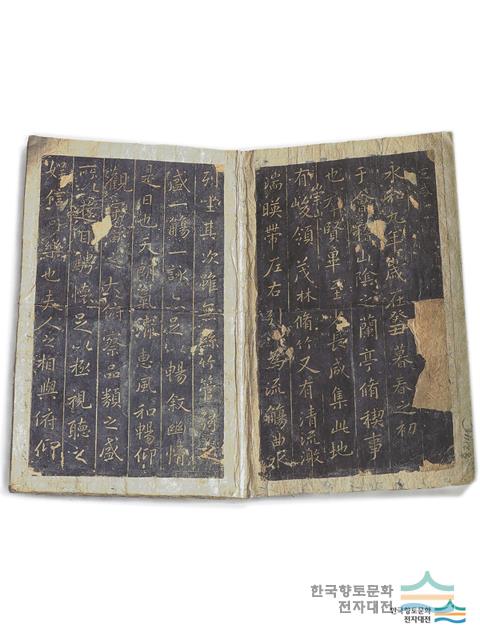 永和九年歲在癸丑暮春之初
于會稽山陰之蘭亭脩禊事
也群賢畢至少長咸集此地
有崇山峻領茂林脩竹又有清流激
湍暎帶左右引以為流觴曲水
列坐其次雖無絲竹管弦之
盛一觴一詠亦足以暢叙幽情
是日也天朗氣清惠風和暢仰
觀宇宙之大俯察品類之盛
所以遊目騁懷足以極視聽之
娛信可樂也夫人之相與俯仰
한국향토문화
전자대전
한국향토문화
전자대전